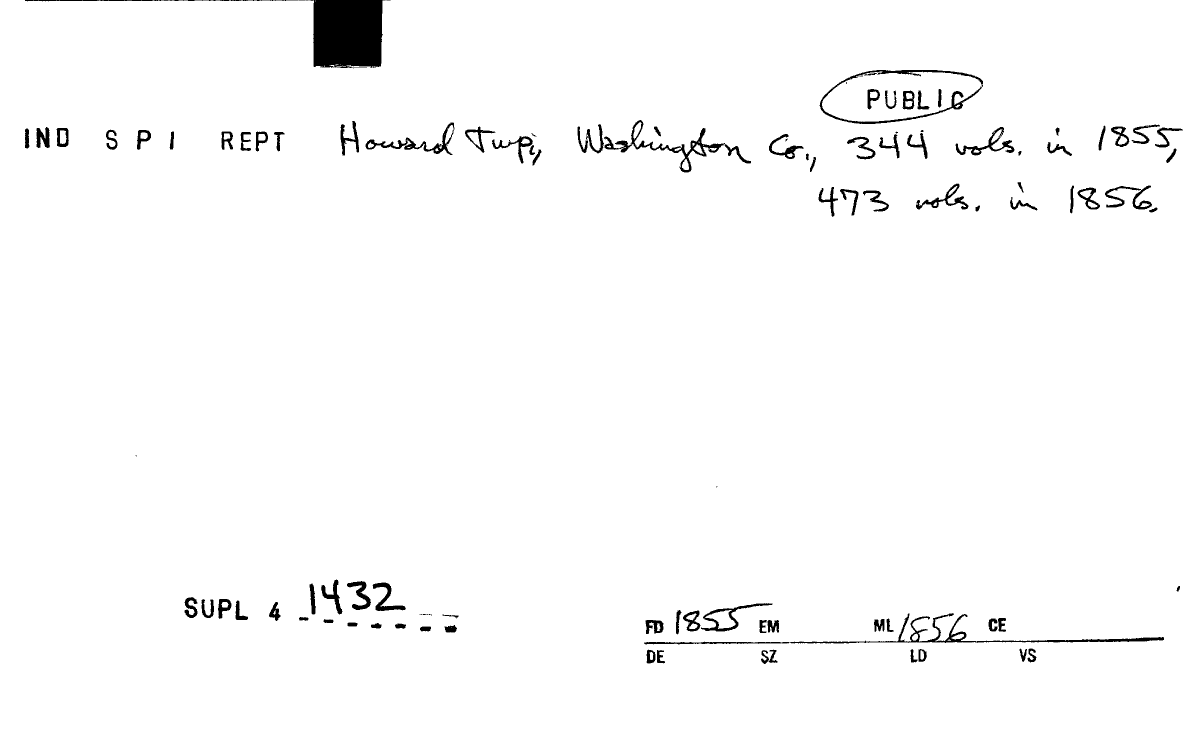 PUBLIC
IND S P I REPT Howard Twp., Washington Co., 344 vols. in 1855,
473 vols. in 1856.
SUPL 4 1432
FD 1855 EM ML 1856 CE
DE SZ LD VS